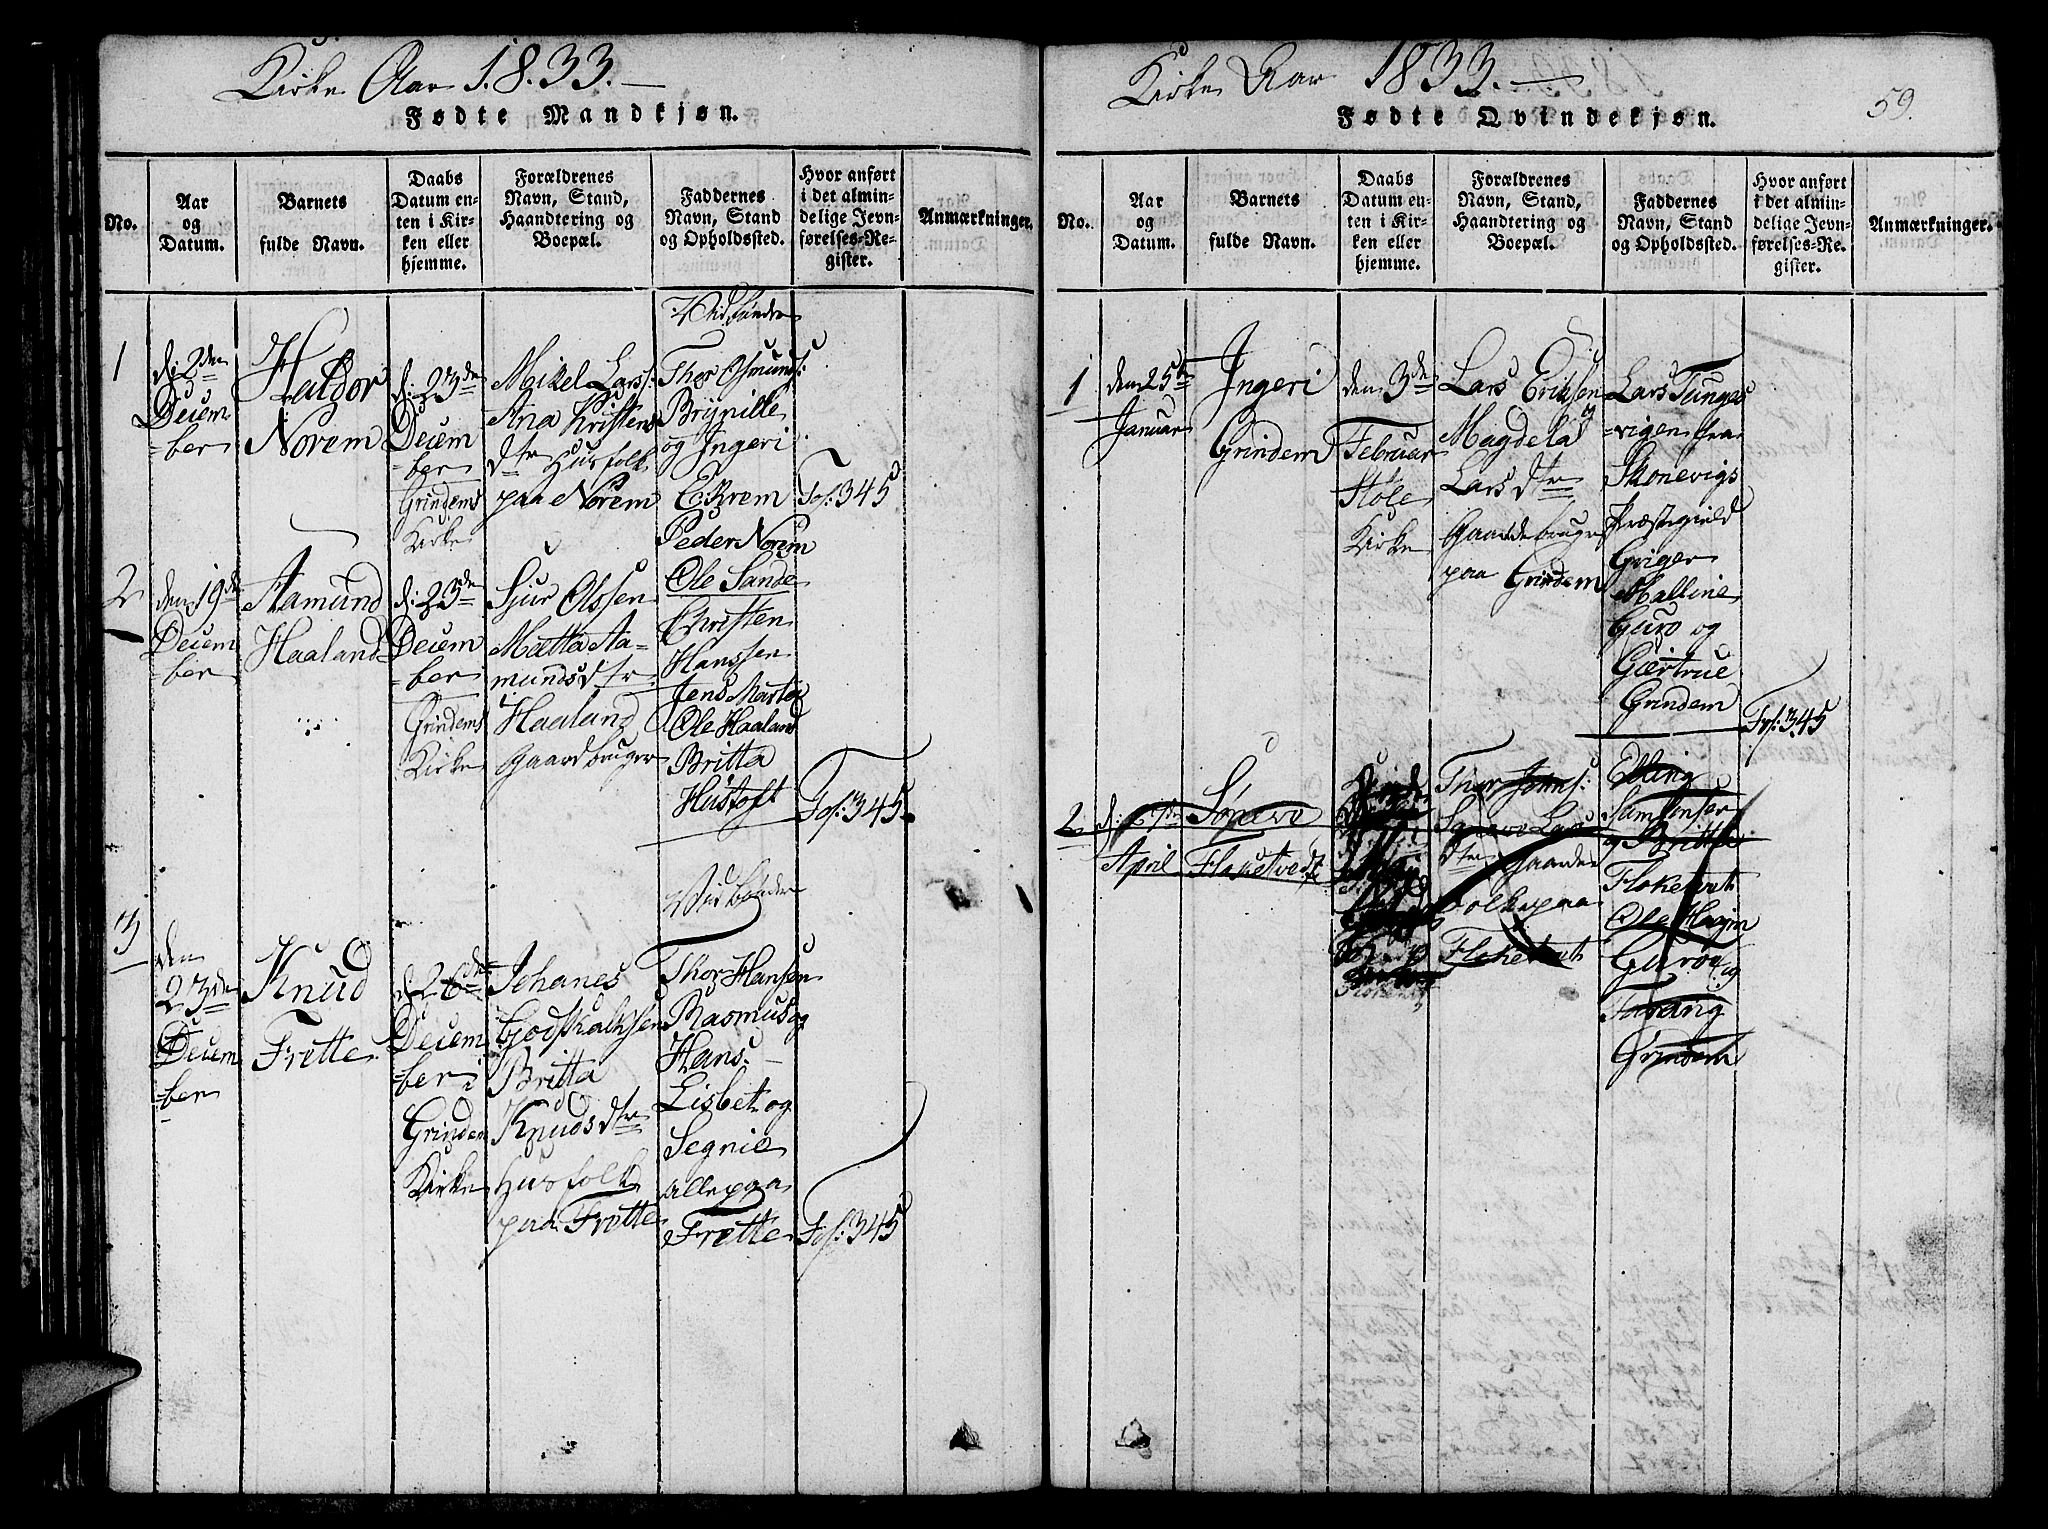 Kirke Aar 1833.
Fødte Mandkjøn.
No.
Aar
og
Datum.
Barnets
fulde Navn.
Daabs
Datum en-
ten i Kir-
ken eller
hjemme.
Forældrenes
Navn, Stand,
Haandtering og
Boepæl.
Faddernes
Navn, Stand
og Opholdssted.
Hvor anført
i det almin-
delige Jevn-
førelses-Re-
gister.
Anmærkninger.
1
d: 2den
Decem
-ber
Haldor
Norem
d: 23de
Decem
-ber
Grindems
Kirke
Mikel Lars:
Ana Kristens
dtr Husfolk
paa Norem
Vidbunden
Thor Osmunds:
Brynille
og Ingeri
Eckrem
Peder Norem
Fol: 345
2
den 19de
Decem
-ber
Aamund
Haaland
d: 23de
Decem
-ber
Grindems
Kirke
Sjur Olssen
Mætta Aa-
mundsdtr
Haaland
Gaardbruger
Ole Sande
Christen
Hanssen
Jens
Ole Haaland
Britta
Hustoft
Fol: 345.
3
den
23de
Decem
-ber
Knud
Frette
d: 26de
Decem
-ber
Grindem
Kirke
Johanes
Godskalksen
Britta
Knudsdtr
Husfolk
paa Frette
Vidbunden
Thor Hansen
Rasmus og
Hans
Lisbet og
Segnie
alle paa
Frette
Fol: 345
Kirke Aar 1833.
59.
Fødte Qvindekjøn.
No.
Aar
og
Datum.
Barnets
fulde Navn.
Daabs
Datum en-
ten i Kir-
ken eller
hjemme.
Forældrenes
Navn, Stand,
Haandtering og
Boepæl.
Faddernes
Navn, Stand
og Opholdssted.
Hvor anført
i det almin-
delige Jevn-
førelses-Re-
gister.
Anmærkninger.
1
den 25de
Januar
Ingeri
Grindem
den 3de
Februar
Støle
Kirke
Lars Eriksen
Magdela
Larsdtr
Gaardbruger
paa Grindem
Lars Tunges
-vigen fra
Skonevigs
Præstegield
Griger
Malline
Guro og
Gærtrue
Grindem
Fol: 345
2
April
Flaketvedt
Thor Johns:
dtr Gaarde
folk paa
Flaketvet
Elling
Samsonsen
og Britta
Flaketvet
Ola
Guro og
Grindem